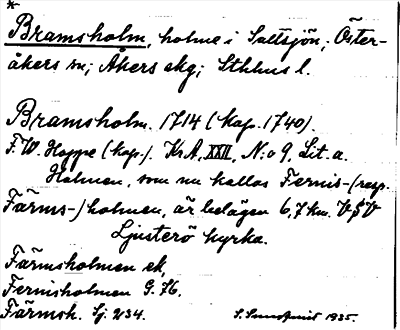 *
Bramsholm, holme i Saltsjön, Öster-
åkers sn; Åkers skg; Sthlms l.
Bramsholm. 1714 (kop. 1740).
F.W. Hoppe (kop.). KrA, XXII, N:o 9, Lit. a.
Holmen, som nu kallas Fernis-(resp.
Färms-)holmen, är belägen 6,7 km. VSV
Ljusterö kyrka.
Färmsholmen ek,
Fernisholmen G. 76,
Färmsh. Sj. 234.
S. 1935.